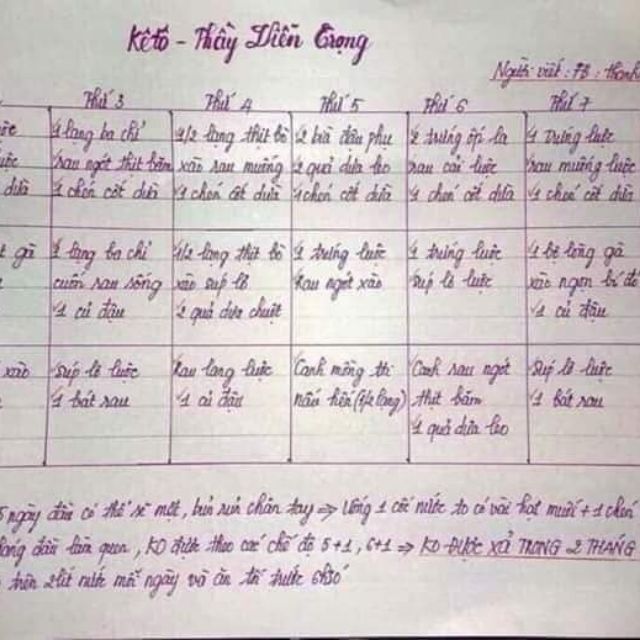 Kêtô - Thầy Diễn Trọng
Người viết: PB: thanh
Thứ 3 Thứ 4 Thứ 5 Thứ 6 Thứ 7
1 lạng ba chỉ 1/2 lạng thịt bò 2 bìa đậu phụ 2 trứng ốp la 1 trứng luộc
rau ngót thịt băm xào rau muống 2 quả dưa leo rau cải luộc rau muống luộc
dừa 1 chén cốt dừa 1 chén cốt dừa 1 chén cốt dừa 1 chén cốt dừa 1 chén cốt dừa
gà 1 lạng ba chỉ 1/2 lạng thịt bò 1 trứng luộc 1 trứng luộc 1 bộ lòng gà
cuốn rau sống xào súp lơ Rau ngót xào súp lơ luộc xào ngọn bí đỏ
1 củ đậu 2 quả dưa chuột 1 củ đậu
xào Súp lơ luộc Rau lang luộc Canh mồng tơi Canh rau ngót Súp lơ luộc
1 bát rau 1 củ đậu nấu hến (1/2 lạng) thịt băm 1 bát rau
1 quả dưa leo
5 ngày đầu có thể sẽ mệt, bủn rủn chân tay ⇒ Uống 1 cốc nước to có vài hạt muối + 1 chén
tháng đầu làm quen, KO được theo các chế độ 5+1, 6+1 ⇒ KO ĐƯỢC XẢ TRONG 2 THÁNG
trên 2 lít nước mỗi ngày và ăn tối trước 6h30'